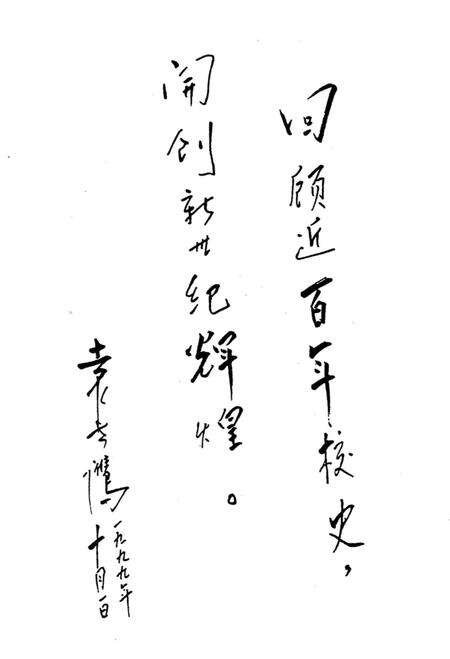 回顾近百年校史，
開创新世纪辉煌。
袁世鹰
一九九九年
十月一日